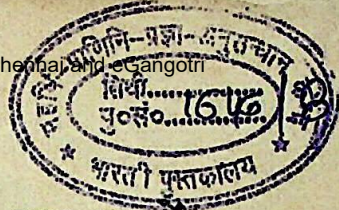 hennai and eGangotri
महर्षि-पाणिनि-प्रज्ञा-अनुसन्धान
तिथी..............
पु०सं०....1616....
भारती पुस्तकालय